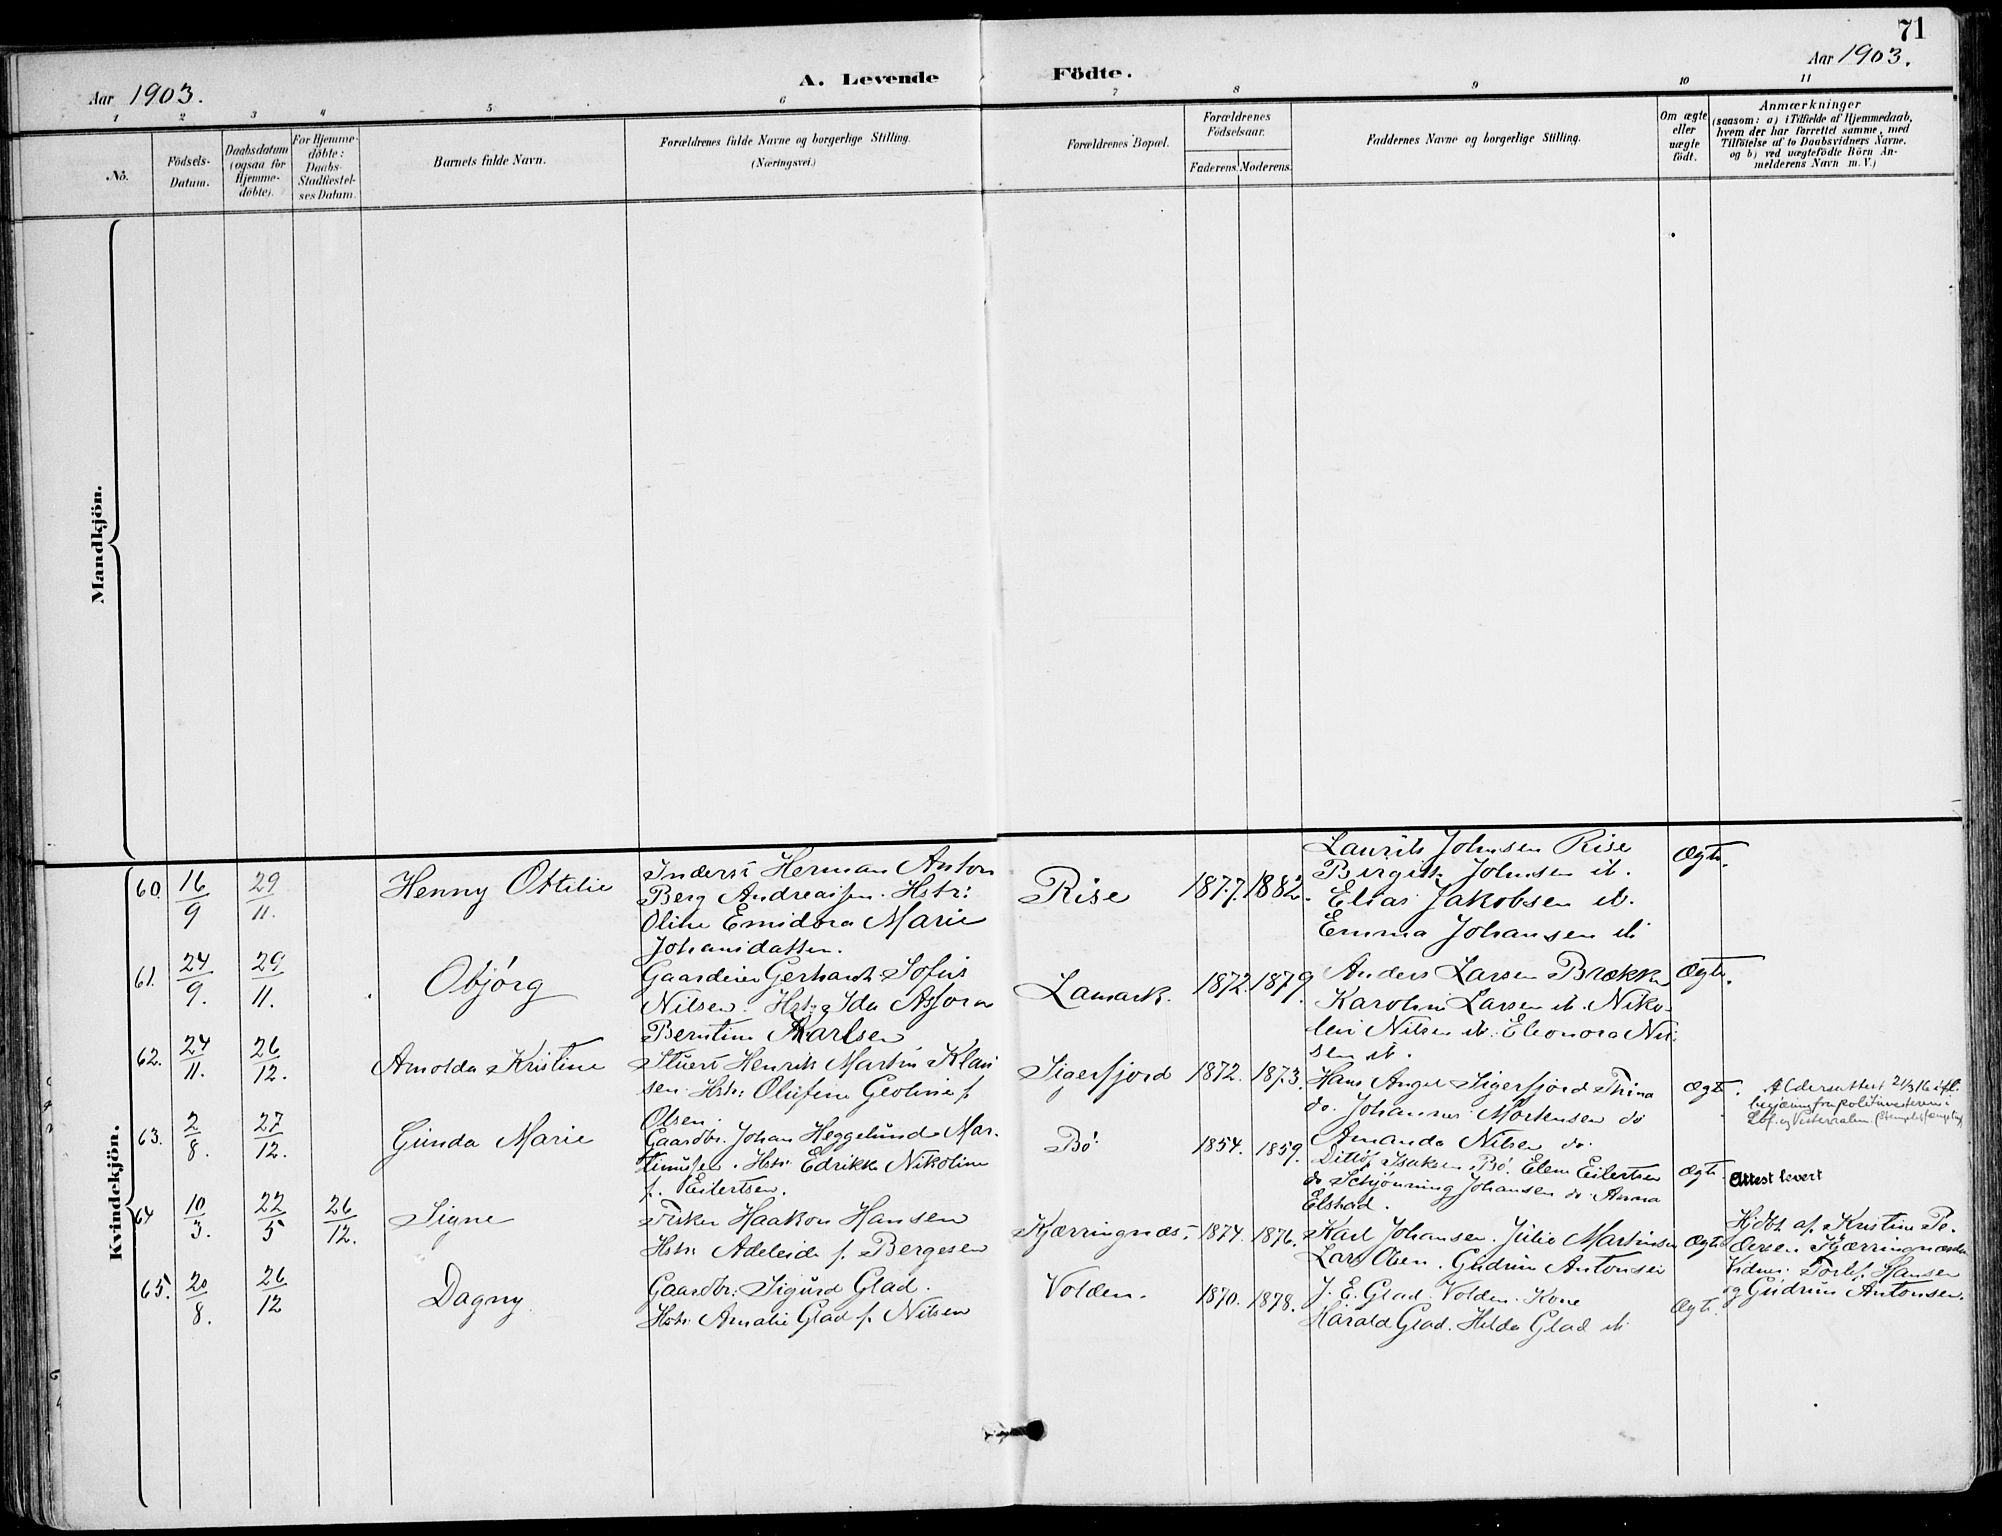 71
Aar 1903.
A. Levende Födte.
Aar 1903.
1 2 3 4 5 6 7 8 9 10 11
No.
Födsels-
Datum.
Daabsdatum
(ogsaa for
Hjemme-
døbte).
For Hjemme-
døbte:
Daabs-
Stadfæstel-
ses Datum.
Barnets fulde Navn.
Forældrenes fulde Navne og borgerlige Stilling.
(Næringsvei.)
Forældrenes Bopæl.
Forældrenes
Födselsaar.
Faderens. Moderens.
Faddernes Navne og borgerlige Stilling.
Om ægte
eller
uægte
födt.
Anmærkninger
(saasom: a) i Tilfælde af Hjemmedaab,
hvem der har forrettet samme, med
Tilföielse af to Daabsvidners Navne,
og b) ved uægtefödte Börn An-
melderens Navn m. V.)
Mandkjön.
Kvindekjön.
60. 16/9 29/11.
Henny Ottilie
Inderst Herman Anton
Berg Andreassen. Hstr:
Oline Emidora Marie
Johansdatter.
Rise
1877. 1882.
Laurits Johnsen Rise
Birgith Johnsen ib.
Elias Jakobsen ib.
Emma Johansen ib
Ægte.
61. 24/9. 29/11.
Objørg
Gaardeier Gerhard Sofus
Nilsen. Hstr: Ida Asora
Berntine Karlsen
Lamark.
1872. 1879.
Anders Larsen Brækka
Karoline Larsen ib. Niko-
lai Nilsen ib. Eleonora Nil-
sen ib.
Ægte.
62. 24/11. 26/12.
Arnolda Kristine
Stuert Henrik Martin Klau
sen. Hstr: Olufine Geoline f.
Olsen.
Sigerfjord
1872. 1873.
Hans Angel Sigerfjord Trina
do. Johannes Mortensen do
Amanda Nilsen do.
Ægte.
Aldersattest 21/3 16 ifl.
begjæring fra politimesteren i
Lof. og Vesteraalen.
63. 2/8. 27/12.
Gunda Marie
Gaardbr. Johan Heggelund Mar-
tinussen. Hstr. Edrikke Nikoline
f. Eilertsen.
Bø
1854. 1859.
Ditlöf Isaksen Bø. Elen Eilertsen
do Schjönning Johansen do. Anna
Elstad.
Ægte
Attest levert
64 10/3. 22/5 26/12.
Signe
Fisker Haakon Hansen
Hstr. Adeleide f. Bergesen
Kjærringnæs.
1874. 1876.
Karl Johansen. Julie Martinsen
Lars Olsen. Gudrun Antonsen
Ægte
Hjdbt. af Kristine Pe-
dersen Kjærringnæsdal
Vidner: Torlef Hansen
og Gudrun Antonsen.
65. 20/8. 26/12
Dagny
Gaardbr: Sigurd Glad.
Hstr. Amalie Glad f. Nilsen
Volden.
1870. 1878.
J. E. Glad. Volden. Kone
Harald Glad. Helda Glad ib
Ægte.